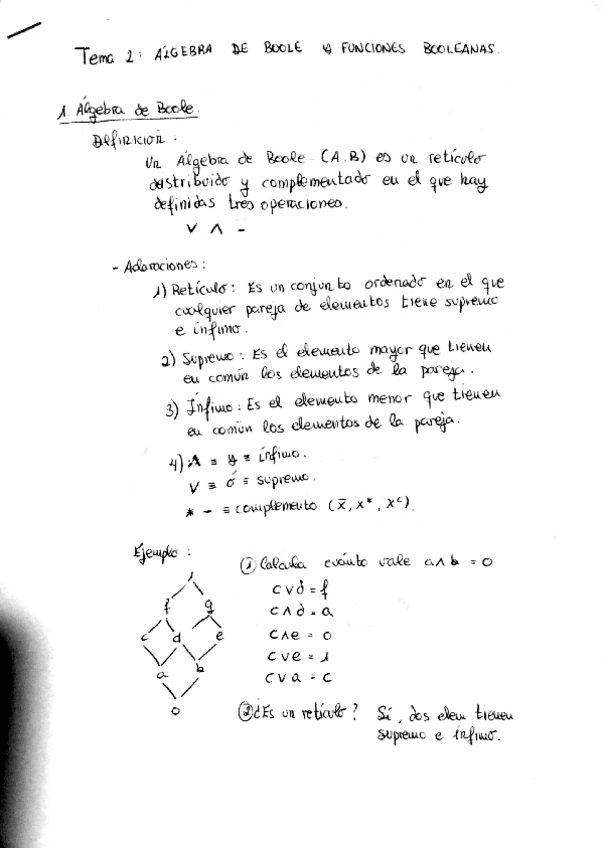 Tema 2: ÁLGEBRA DE BOOLE Y FUNCIONES BOOLEANAS.
1. Álgebra de Boole.
Definición:
Un Álgebra de Boole (A.B) es un retículo
distribuido y complementado en el que hay
definidas tres operaciones.
∨ ∧ -
- Aclaraciones:
1) Retículo: Es un conjunto ordenado en el que
cualquier pareja de elementos tiene supremo
e ínfimo.
2) Supremo: Es el elemento mayor que tienen
en común los elementos de la pareja.
3) Ínfimo: Es el elemento menor que tienen
en común los elementos de la pareja.
4) ∧ ≡ y ≡ ínfimo.
∨ ≡ ó ≡ supremo.
* - ≡ complemento (x̄, x*, xᶜ).
Ejemplo:
1
f g
c d e
a b
0
① Calcula cuánto vale a∧b = 0
c∨d = f
c∧d = a
c∧e = 0
c∨e = 1
c∨a = c
② ¿Es un retículo? Sí, dos elem tienen
supremo e ínfimo.